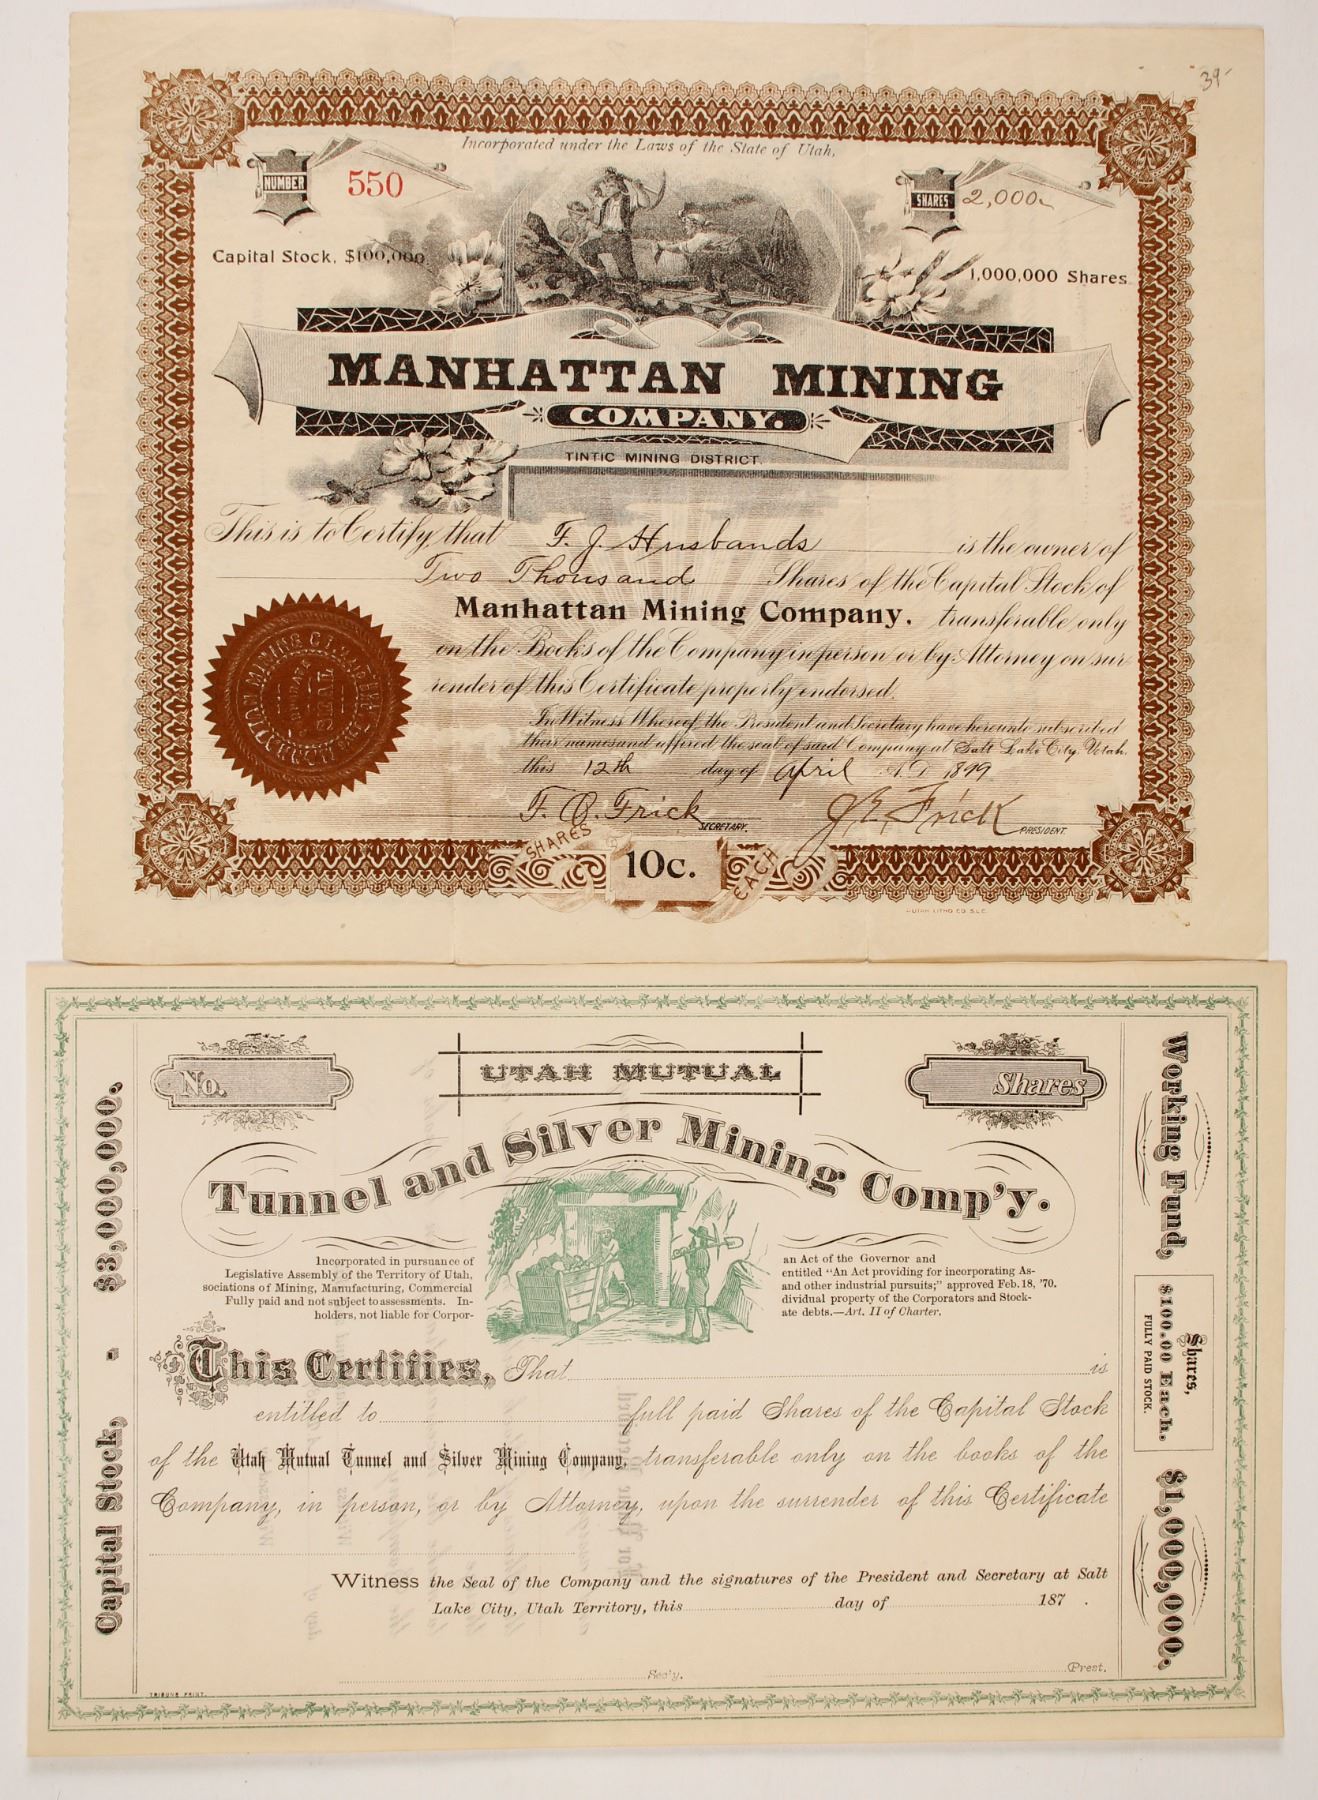 39
Incorporated under the Laws of the State of Utah,
NUMBER 550
SHARES 2,000
Capital Stock, $100,000
1,000,000 Shares
MANHATTAN MINING
COMPANY.
TINTIC MINING DISTRICT.
This is to Certify that F. J. Husbands is the owner of
Two Thousand Shares of the Capital Stock of
Manhattan Mining Company, transferable only
on the Books of the Company in person or by Attorney on sur
render of this Certificate properly endorsed.
In Witness Whereof the President and Secretary have hereunto subscribed
their names and affixed the seal of said Company at Salt Lake City, Utah.
this 12th day of April A.D. 1899
F. C. Frick SECRETARY.
J. E. Frick PRESIDENT.
SEAL
SHARES 10c. EACH
UTAH LITHO CO. S.L.C.
No.
UTAH MUTUAL
Shares
Tunnel and Silver Mining Comp'y.
Incorporated in pursuance of an Act of the Governor and
Legislative Assembly of the Territory of Utah, entitled "An Act providing for incorporating As-
sociations of Mining, Manufacturing, Commercial and other industrial pursuits;" approved Feb. 18, '70.
Fully paid and not subject to assessments. In- dividual property of the Corporators and Stock-
holders, not liable for Corpor- ate debts.—Art. II of Charter.
This Certifies, That is
entitled to full paid Shares of the Capital Stock
of the Utah Mutual Tunnel and Silver Mining Company, transferable only on the books of the
Company, in person, or by Attorney, upon the surrender of this Certificate
Witness the Seal of the Company and the signatures of the President and Secretary at Salt
Lake City, Utah Territory, this day of 187 .
Sec'y. Prest.
TRIBUNE PRINT.
Capital Stock, - $3,000,000.
Working Fund, $1,000,000.
Shares,
$100.00 Each.
FULLY PAID STOCK.